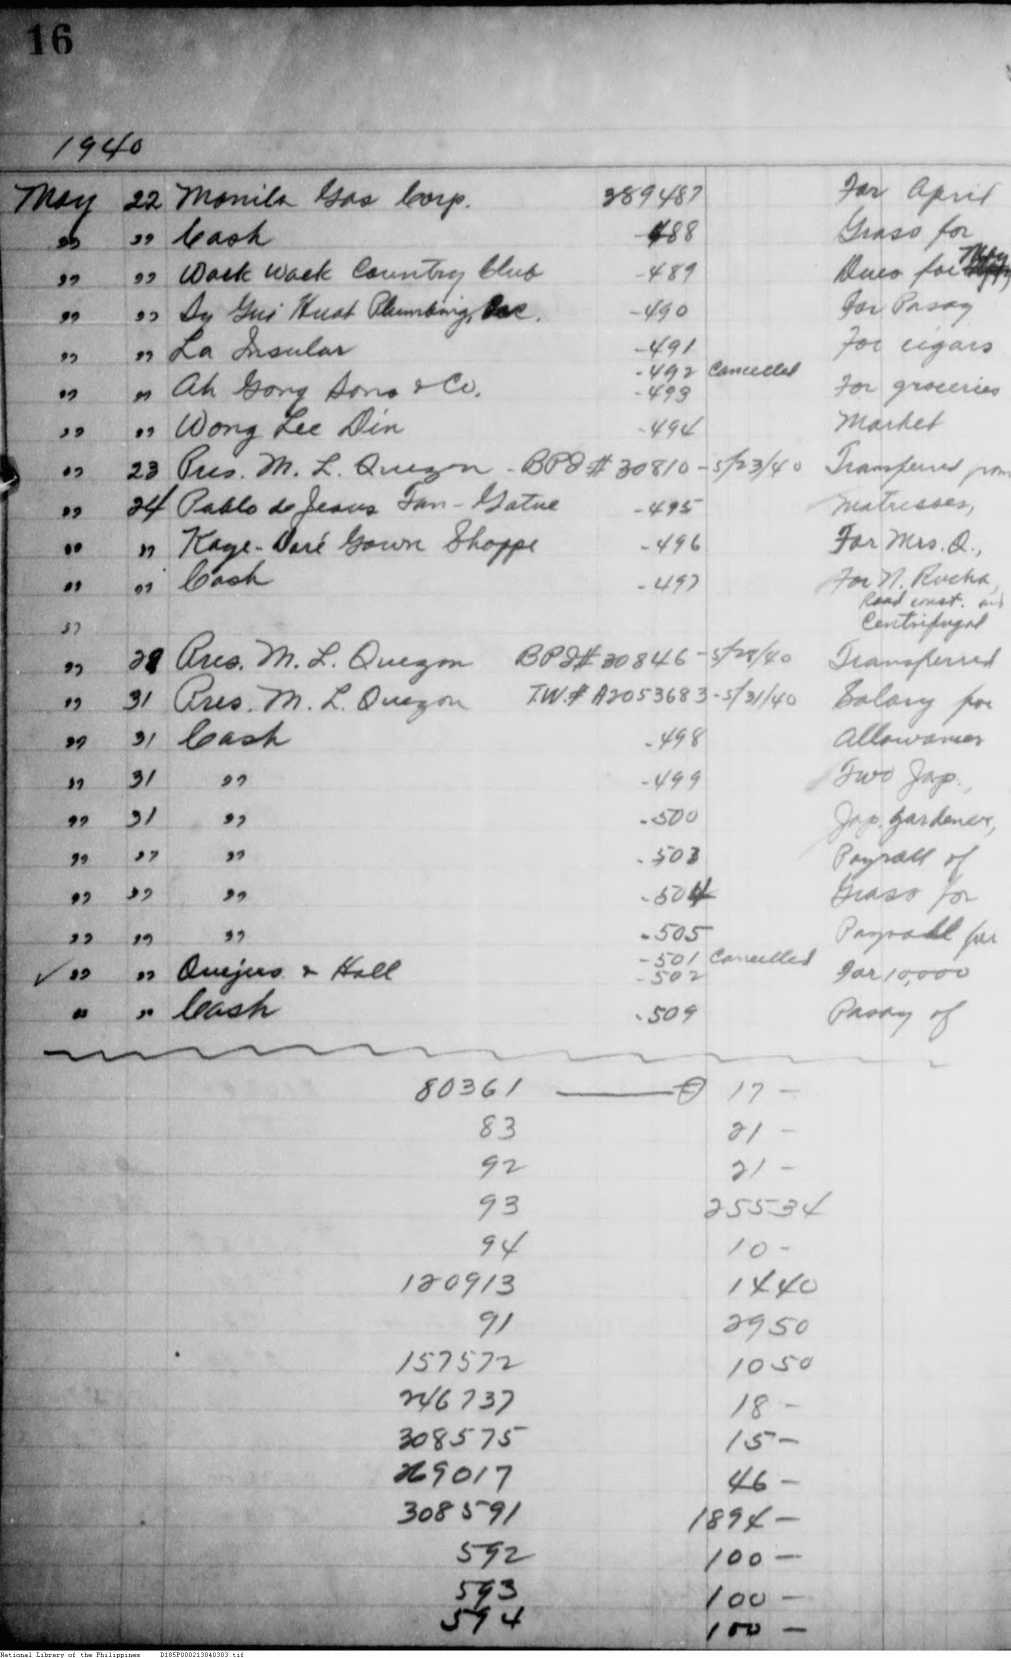 16
1940
May 22 Manila Gas Corp. 289487 For April
" " Cash -488 Grass for
" " Wack Wack Country Club -489 Dues for May
" " Sy Gui Huat Plumbing, Inc. -490 For Pasay
" " La Insular -491 For cigars
-492 Cancelled
" " Ah Gong Sons & Co. -493 For groceries
" " Wong Lee Din -494 Market
" 23 Pres. M. L. Quezon - BPI # 30810 - 5/23/40 Transferred from
" 24 Pablo de Jesus Fan-Gatue -495 Matresses,
" " Kaye-Daré Gown Shoppe -496 For Mrs. Q.,
" " Cash -497 For N. Rocha,
Road const. and
" Centrifugal
" 28 Pres. M. L. Quezon BPI # 30846 - 5/28/40 Transferred
" 31 Pres. M. L. Quezon T.W. # A2053683 - 5/31/40 Salary for
" 31 Cash -498 Allowances
" 31 " -499 Two Jap.,
" 31 " -500 Jap. gardener,
" " " -503 Payroll of
" " " -504 Grass for
" " " -505 Payroll for
-501 Cancelled
✓ " " & Hall -502 For 10,000
" " Cash -509 Pasay of
80361 17 -
83 21 -
92 21 -
93 255 34
94 10 -
120913 14 40
91 29 50
157572 10 50
246737 18 -
308575 15 -
269017 46 -
308591 1894 -
592 100 -
593 100 -
594 100 -
National Library of the Philippines D185P000213040303.tif